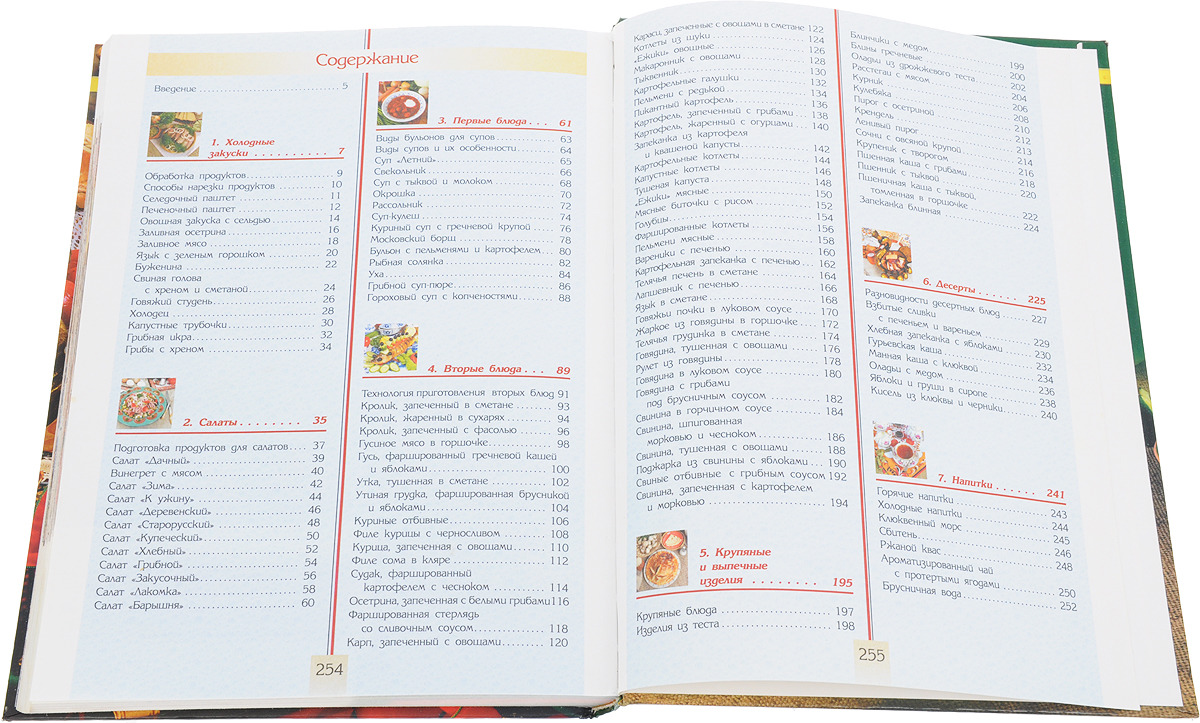 Содержание
Введение 5
1. Холодные
закуски 7
Обработка продуктов 9
Способы нарезки продуктов 10
Селедочный паштет 11
Печеночный паштет 12
Овощная закуска с сельдью 14
Заливная осетрина 16
Заливное мясо 18
Язык с зеленым горошком 20
Буженина 22
Свиная голова
с хреном и сметаной 24
Говяжий студень 26
Холодец 28
Капустные трубочки 30
Грибная икра 32
Грибы с хреном 34
2. Салаты 35
Подготовка продуктов для салатов 37
Салат «Дачный» 39
Винегрет с мясом 40
Салат «Зима» 42
Салат «К ужину» 44
Салат «Деревенский» 46
Салат «Старорусский» 48
Салат «Купеческий» 50
Салат «Хлебный» 52
Салат «Грибной» 54
Салат «Закусочный» 56
Салат «Лакомка» 58
Салат «Барышня» 60
3. Первые блюда 61
Виды бульонов для супов 63
Виды супов и их особенности 64
Суп «Летний» 65
Свекольник 66
Суп с тыквой и молоком 68
Окрошка 70
Рассольник 72
Суп-кулеш 74
Куриный суп с гречневой крупой 76
Московский борщ 78
Бульон с пельменями и картофелем 80
Рыбная солянка 82
Уха 84
Грибной суп-пюре 86
Гороховый суп с копченостями 88
4. Вторые блюда 89
Технология приготовления вторых блюд 91
Кролик, запеченный в сметане 93
Кролик, жаренный в сухарях 94
Кролик, запеченный с фасолью 96
Гусиное мясо в горшочке 98
Гусь, фаршированный гречневой кашей
и яблоками 100
Утка, тушенная в сметане 102
Утиная грудка, фаршированная брусникой
и яблоками 104
Куриные отбивные 106
Филе курицы с черносливом 108
Курица, запеченная с овощами 110
Филе сома в кляре 112
Судак, фаршированный
картофелем с чесноком 114
Осетрина, запеченная с белыми грибами 116
Фаршированная стерлядь
со сливочным соусом 118
Карп, запеченный с овощами 120
254
Караси, запеченные с овощами в сметане 122
Котлеты из щуки 124
«Ежики» овощные 126
Макаронник с овощами 128
Тыквенник 130
Картофельные галушки 132
Пельмени с редькой 134
Пикантный картофель 136
Картофель, запеченный с грибами 138
Картофель, жаренный с огурцами 140
Запеканка из картофеля
и квашеной капусты 142
Картофельные котлеты 144
Капустные котлеты 146
Тушеная капуста 148
«Ежики» мясные 150
Мясные биточки с рисом 152
Голубцы 154
Фаршированные котлеты 156
Пельмени мясные 158
Вареники с печенью 160
Картофельная запеканка с печенью 162
Телячья печень в сметане 164
Лапшевник с печенью 166
Язык в сметане 168
Говяжьи почки в луковом соусе 170
Жаркое из говядины в горшочке 172
Телячья грудинка в сметане 174
Говядина, тушенная с овощами 176
Рулет из говядины 178
Говядина в луковом соусе 180
Говядина с грибами
под брусничным соусом 182
Свинина в горчичном соусе 184
Свинина, шпигованная
морковью и чесноком 186
Свинина, тушенная с овощами 188
Поджарка из свинины с яблоками 190
Свиные отбивные с грибным соусом 192
Свинина, запеченная с картофелем
и морковью 194
5. Крупяные
и выпечные
изделия 195
Крупяные блюда 197
Изделия из теста 198
Блинчики с медом 199
Блины гречневые 200
Оладьи из дрожжевого теста 202
Расстегаи с мясом 204
Курник 206
Кулебяка 208
Пирог с осетриной 210
Крендель 212
Ленивый пирог 213
Сочни с овсяной крупой 214
Крупеник с творогом 216
Пшенная каша с грибами 218
Пшенник с тыквой 220
Пшеничная каша с тыквой,
томленная в горшочке 222
Запеканка блинная 224
6. Десерты 225
Разновидности десертных блюд 227
Взбитые сливки
с печеньем и вареньем 229
Хлебная запеканка с яблоками 230
Гурьевская каша 232
Манная каша с клюквой 234
Оладьи с медом 236
Яблоки и груши в сиропе 238
Кисель из клюквы и черники 240
7. Напитки 241
Горячие напитки 243
Холодные напитки 244
Клюквенный морс 245
Сбитень 246
Ржаной квас 248
Ароматизированный чай
с протертыми ягодами 250
Брусничная вода 252
255